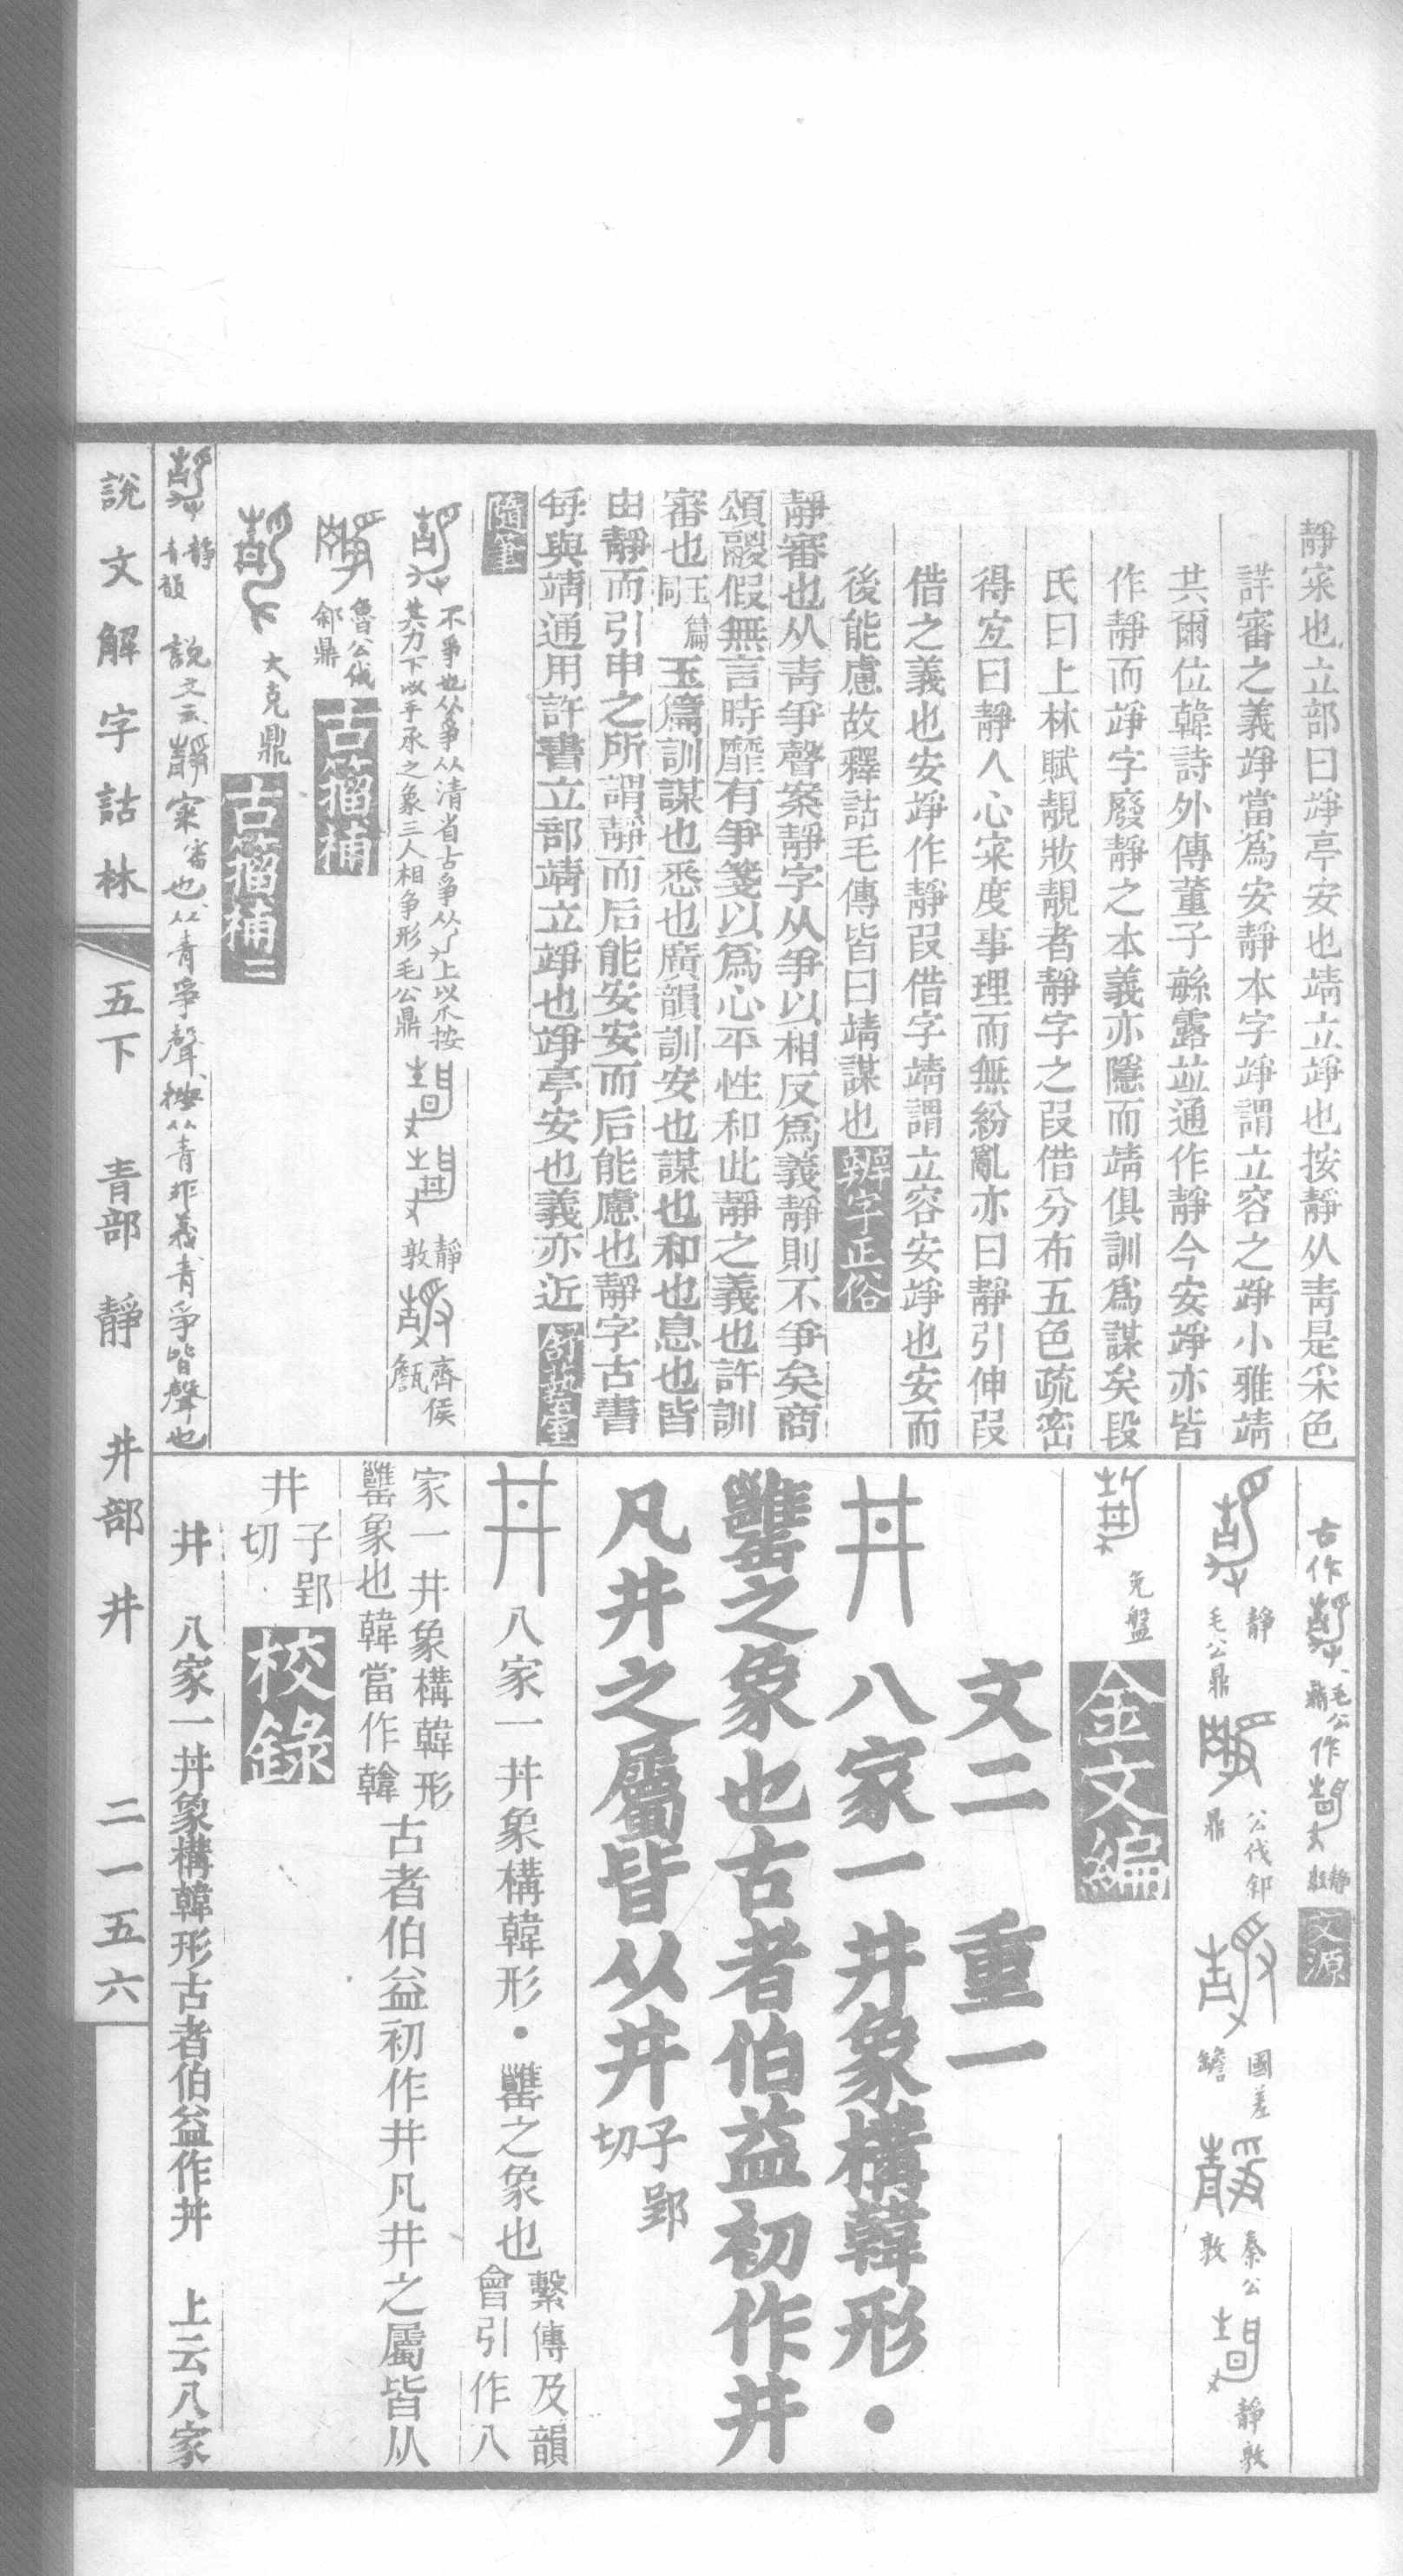 靜宷也立部曰竫亭安也靖立竫也按靜从靑是采色
詳審之義竫當爲安靜本字竫謂立容之竫小雅靖
共爾位韓詩外傳董子緐露竝通作靜今安竫亦皆
作靜而竫字廢靜之本義亦隱而靖俱訓爲謀矣段
氏曰上林賦靚妝靚者靜字之叚借分布五色疏密
得宜曰靜人心宷度事理而無紛亂亦曰靜引伸叚
借之義也安竫作靜叚借字靖謂立容安竫也安而
後能慮故釋詁毛傳皆曰靖謀也 辨字正俗
靜審也从靑爭聲案靜字从爭以相反爲義靜則不爭矣商
頌鬷假無言時靡有爭箋以爲心平性和此靜之義也許訓
審也玉篇同玉篇訓謀也悉也廣韻訓安也謀也和也息也皆
由靜而引申之所謂靜而后能安安而后能慮也靜字古書
每與靖通用許書立部靖立竫也竫亭安也義亦近 舒蓺室
隨筆
不爭也从爭从清省古爭从上以爪按
其力下以手承之象三人相爭形毛公鼎 靜敦 齊侯甔
魯公伐鄃鼎 古籀補
大克鼎 古籀補二
靜 青韻 說文云靜宷審也从青爭聲按从青非義青爭皆聲也
古作 毛公鼎 作 靜𣪘 文源
靜 毛公鼎 公伐鄃鼎 國差𦉜 秦公敦 靜敦
免盤 金文編
文二 重一
丼 八家一井象構韓形・
罋之象也古者伯益初作井
凡井之屬皆从井子郢切
丼 八家一丼象構韓形・罋之象也繫傳及韻會引作八
家一井象構韓形罋象也韓當作韓古者伯益初作井凡井之屬皆从
井子郢切 校錄
井 八家一丼象構韓形古者伯益作丼 上云八家
說文解字詁林 五下 青部 靜 井部 井 二一五六